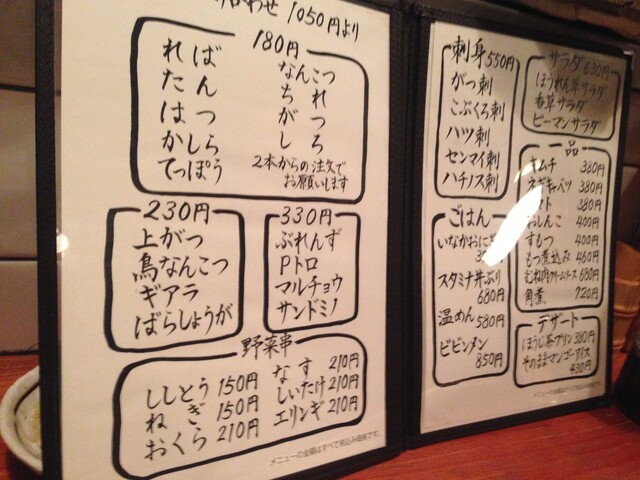 わせ 1050円より
180円
ればん
たん
はつ
かしら
てっぽう
なんこつ
ちれ
がつ
しろ
2本からの注文で
お願いします
230円
上がつ
鳥なんこつ
ギアラ
ばらしょうが
330円
ぶれんず
Pトロ
マルチョウ
サンドミノ
野菜串
ししとう 150円
ねぎ 150円
おくら 210円
なす 210円
しいたけ 210円
エリンギ 210円
メニューの金額はすべて税込み価格です。
刺身 550円
がつ刺
こぶくろ刺
ハツ刺
センマイ刺
ハチノス刺
ごはん
いなかおに
スタミナ丼ぶり
680円
温めん 580円
ビビンメン
850円
サラダ 630円
ほうれん草サラダ
香草サラダ
ピーマンサラダ
一品
キムチ 380円
ネギキャベツ 380円
トマト 380円
おしんこ 400円
すもつ 400円
もつ煮込み 460円
むね肉クリームソース 680円
角煮 720円
デザート
ほうじ茶プリン 380円
そのままマンゴーアイス
430円
メニューの金額はすべて税込み価格です。